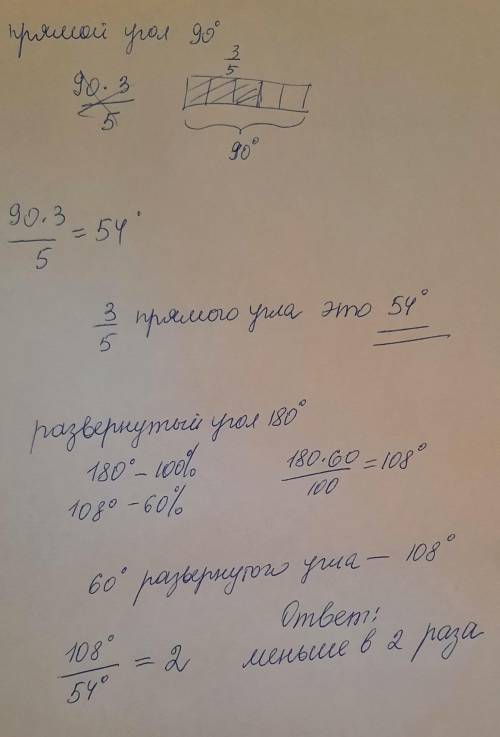 прямой угол 90°
3/5
90·3/5
90°
90·3/5 = 54°
3/5 прямого угла это 54°
развернутый угол 180°
180° – 100%
108° – 60%
180·60/100 = 108°
60° развернутого угла – 108°
108°/54° = 2
Ответ:
меньше в 2 раза